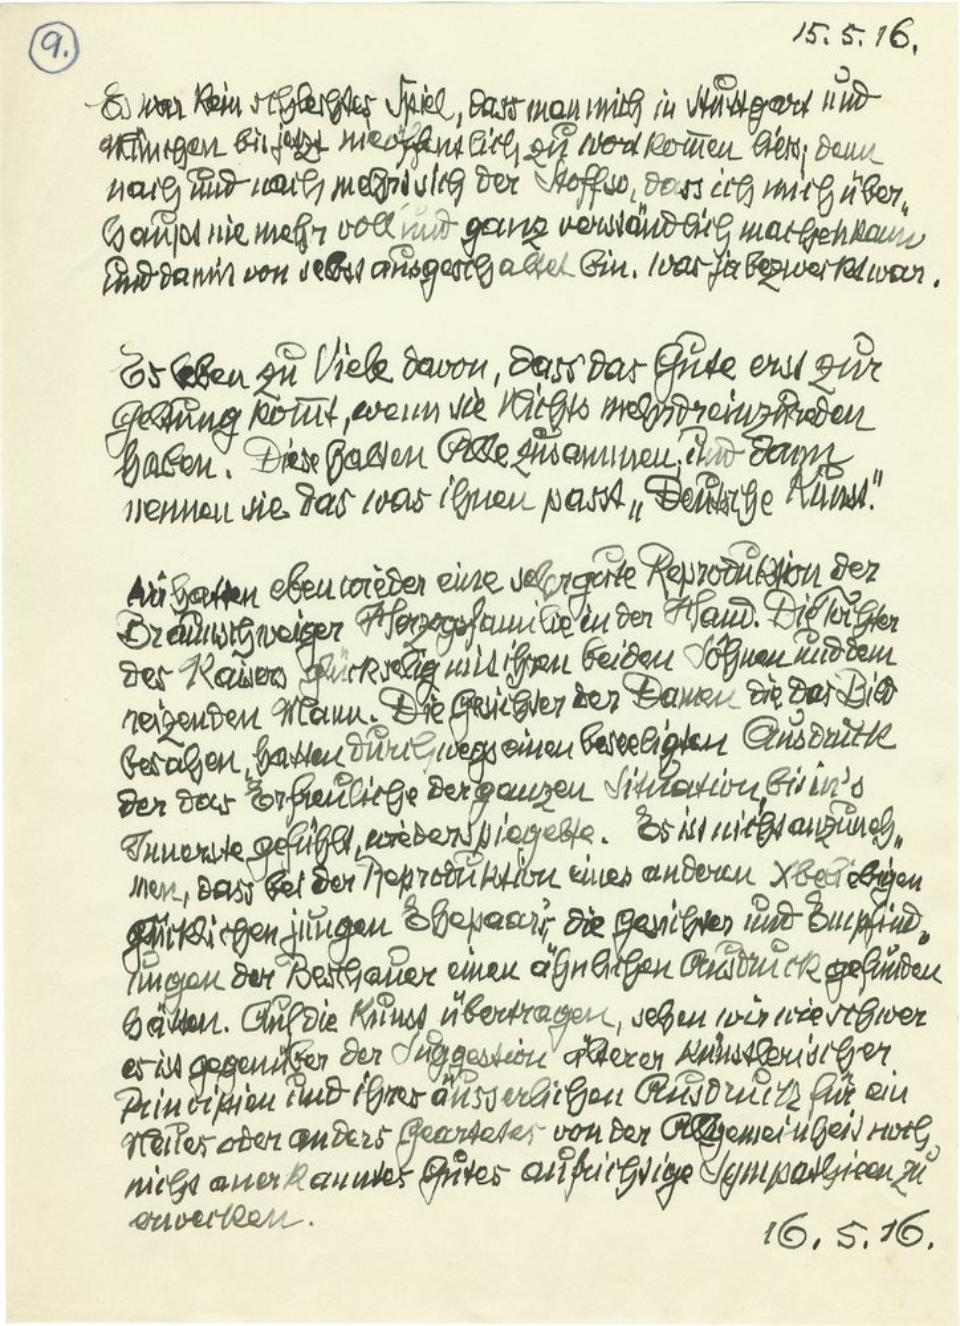 9.
15.5.16.
Es war kein schlechtes Spiel, dass man mich in Stuttgart und
München bis jetzt nie öffentlich zu wort komen liess; denn
nach und nach mehrt sich der Stoff so, dass ich mich über„
haupt nie mehr voll und ganz verständlich machen kann
und damit von selbst ausgeschaltet bin. was ja bezweckt war.
Es leben zu Viele davon, dass das Gute erst zur
Geltung komt, wenn sie Nichts mehr dreinzureden
haben. Diese halten Alle zusammen, und dann
nennen sie das was ihnen passt „Deutsche Kunst."
Wir hatten eben wieder eine sehr gute Reproduktion der
Braunschweiger Herzogsfamilie in der Hand. Die Tochter
des Kaisers glückselig mit ihren beiden Söhnen und dem
reizenden Mann. Die Gesichter der Damen die das Bild
besahen, hatten durchwegs einen beseeligten Ausdruck
der das Erfreuliche der ganzen Situation, bis in's
Innerste gefühlt, wiederspiegelte. Es ist nicht anzuneh„
men, dass bei der Reproduktion eines anderen Xbeliebigen
glücklichen jungen Ehepaar's, die Gesichter und Empfind„
ungen der Beschauer einen ähnlichen Ausdruck gefunden
hätten. Auf die Kunst übertragen, sehen wir wie schwer
es ist gegenüber der Suggestion älterer künstlerischer
Principien und ihres äusserlichen Ausdruck für ein
Neues oder anders Geartetes von der Allgemeinheit noch
nicht anerkanntes Gutes aufrichtige Sympathieen zu
erwecken.
16.5.16.